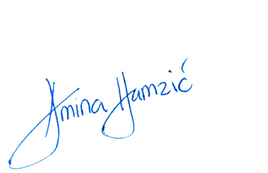 Amina Hamzić